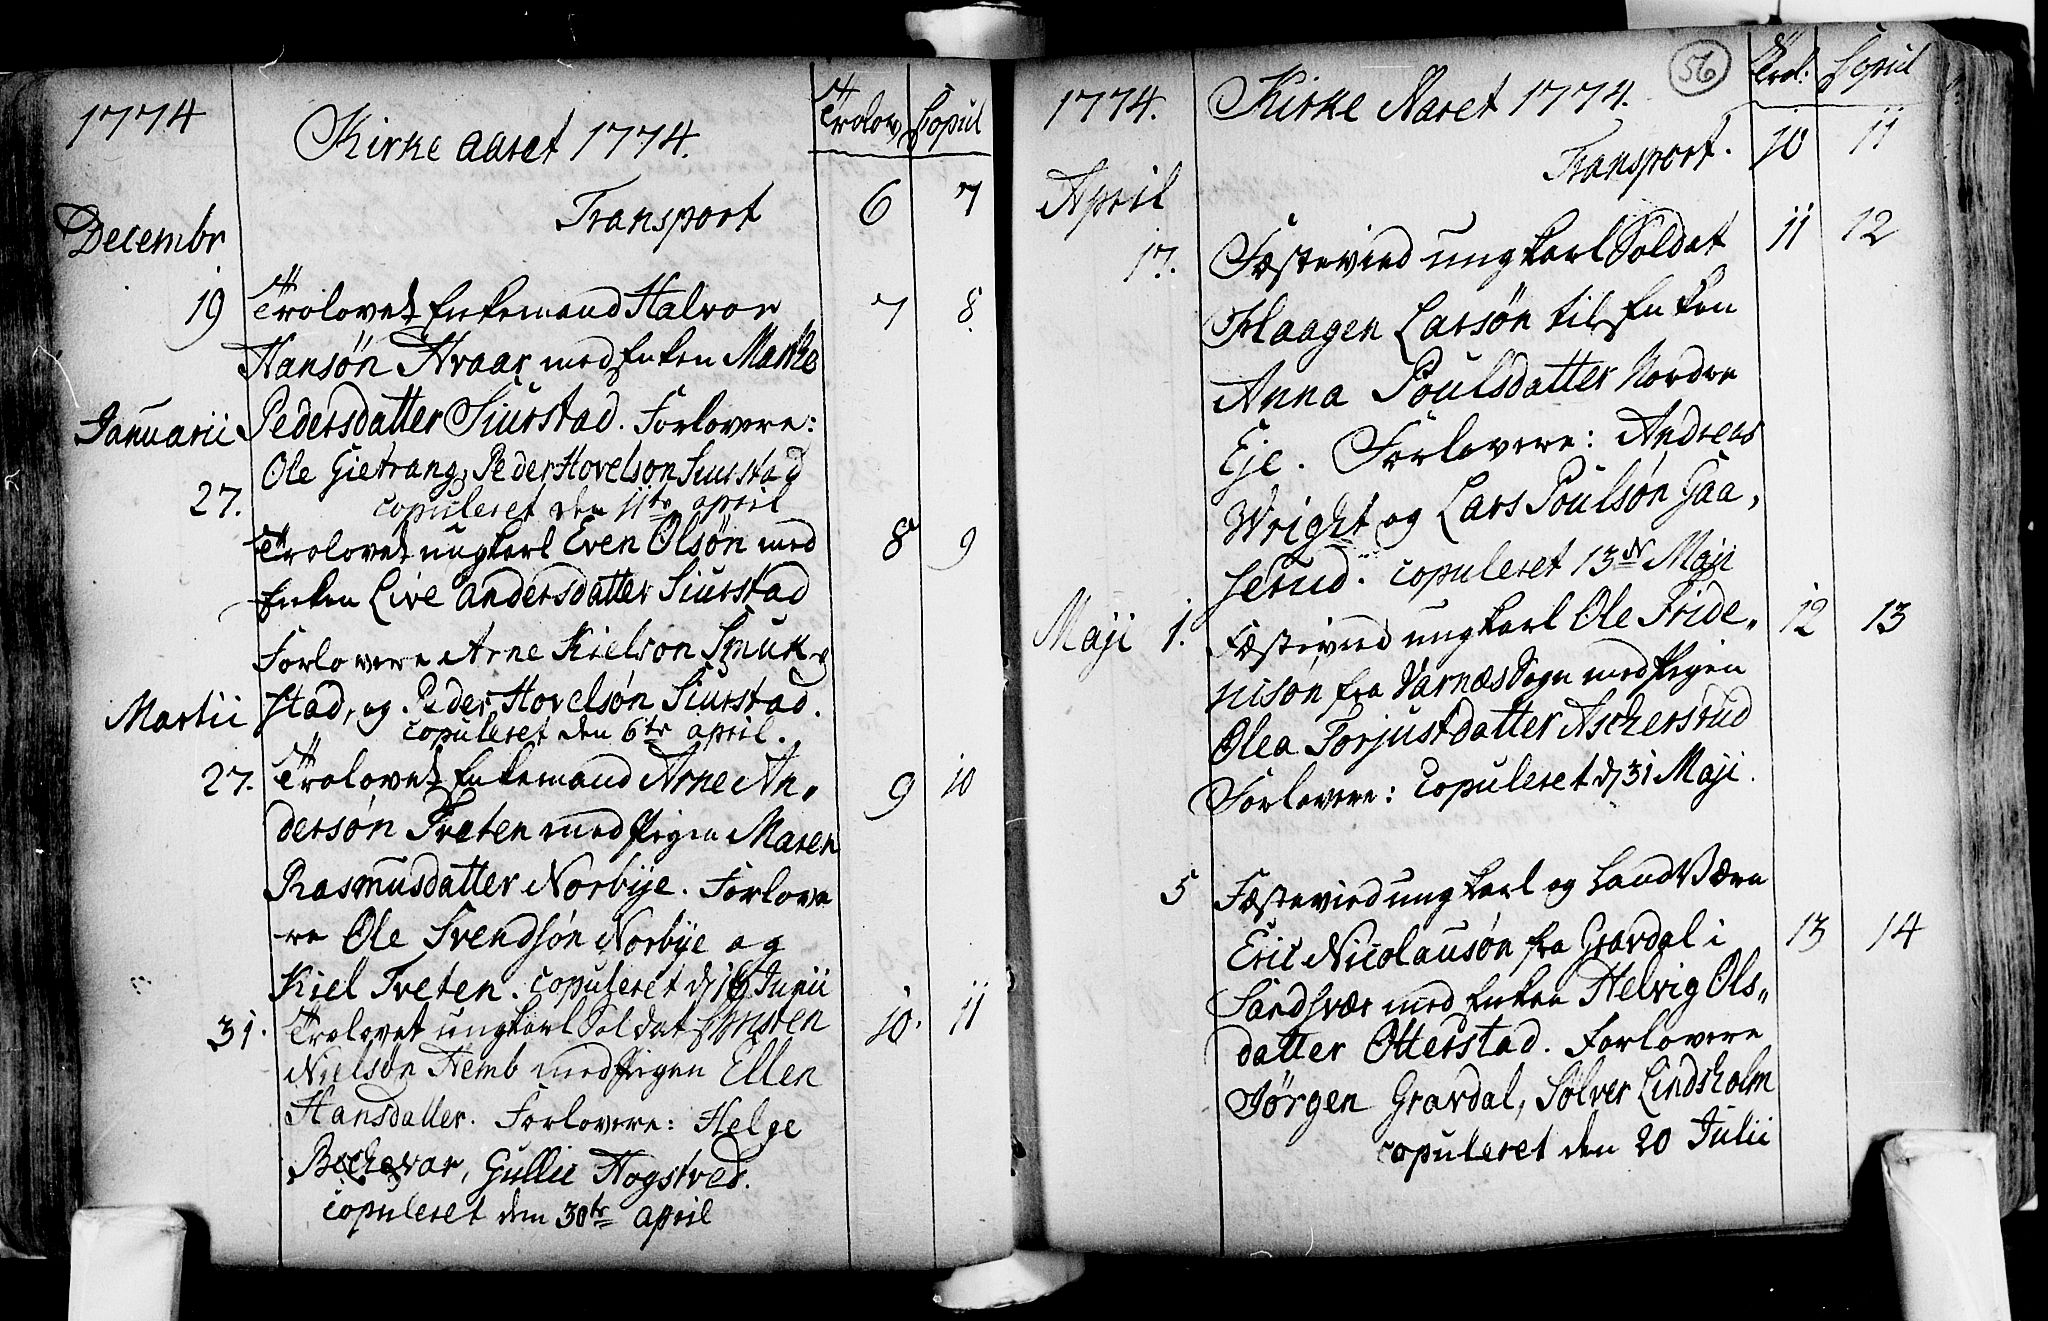 1774
Kirke aaret 1774.
Trolov. Copul
Transport 6 7
Decembr
19 Trolovet Enkemand Halvor 7 8.
Hansøn Hvaar med Enken Marthe
Januarii Pedersdatter Siurstad. Forlovere:
Ole Gietrang, Peder Hovelson Siurstad
copuleret den 11te april
27. Trolovet ungkarl Even Olsøn med 8 9
Enken Live andersdatter Siurstad
Forlovere Arne Kielson Smuk-
Martii stad, og Peder Hovelsøn Siurstad.
copuleret den 6te april.
27. Trolovet Enkemand Arne An- 9 10
dersøn Tveten med Pigen Maren
Rasmusdatter Norbye. Forlove
re Ole Svendsøn Norbye og
Kiel Tveten. copuleret d 16 Junii
31. Trolovet ungkarl Soldat Christen 10. 11
Nielsøn Hemb med Pigen Ellen
Hansdatter. Forlovere: Helge
Bechevar, Gullic Hogstved.
copuleret den 30te april
56
1774. Kirke Aaret 1774. Trol: Copul
Transport. 10 11
April
17. Fæstevied ungkarl Soldat 11 12
Haagen Larsøn til Enken
Anna Poulsdatter Nordre
Eje. Forlovere: Andreas
Wright og Lars Poulsøn Gaa-
serud. copuleret 13de Maji
Maji 1. Fæstevied ungkarl Ole Fride- 12 13
nisøn fra Varnæs Sogn med Pigen
Olea Torjustdatter Aschersrud
Forlovere: copuleret d 31 Maji.
5 Fæstevied ungkarl og Land Værn
Eric Nicolausøn fra Gravdal i 13 14
Sandsvær med Enken Helvig Ols-
datter Otterstad. Forlovere
Jørgen Gravdal, Sølver Lindsholm
copuleret den 20 Julii